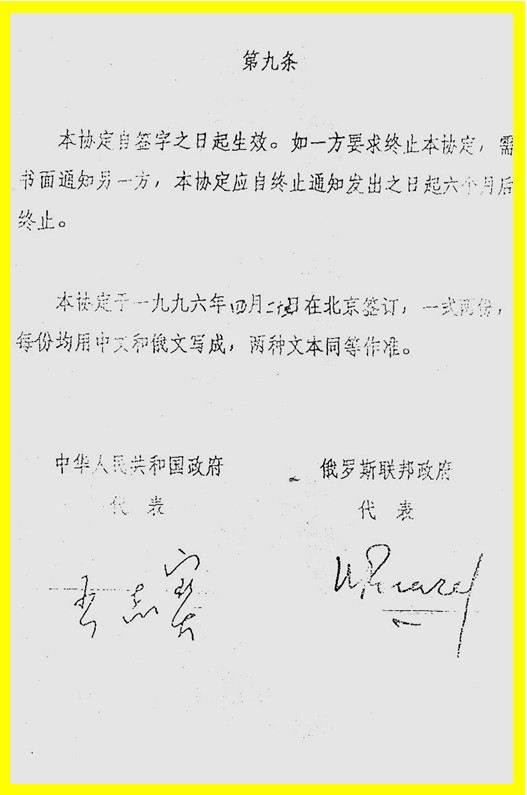 第九条
本协定自签字之日起生效。如一方要求终止本协定，需
书面通知另一方，本协定应自终止通知发出之日起六个月后
终止。
本协定于一九九六年四月二十五日在北京签订，一式两份，
每份均用中文和俄文写成，两种文本同等作准。
中华人民共和国政府
代表
俄罗斯联邦政府
代表